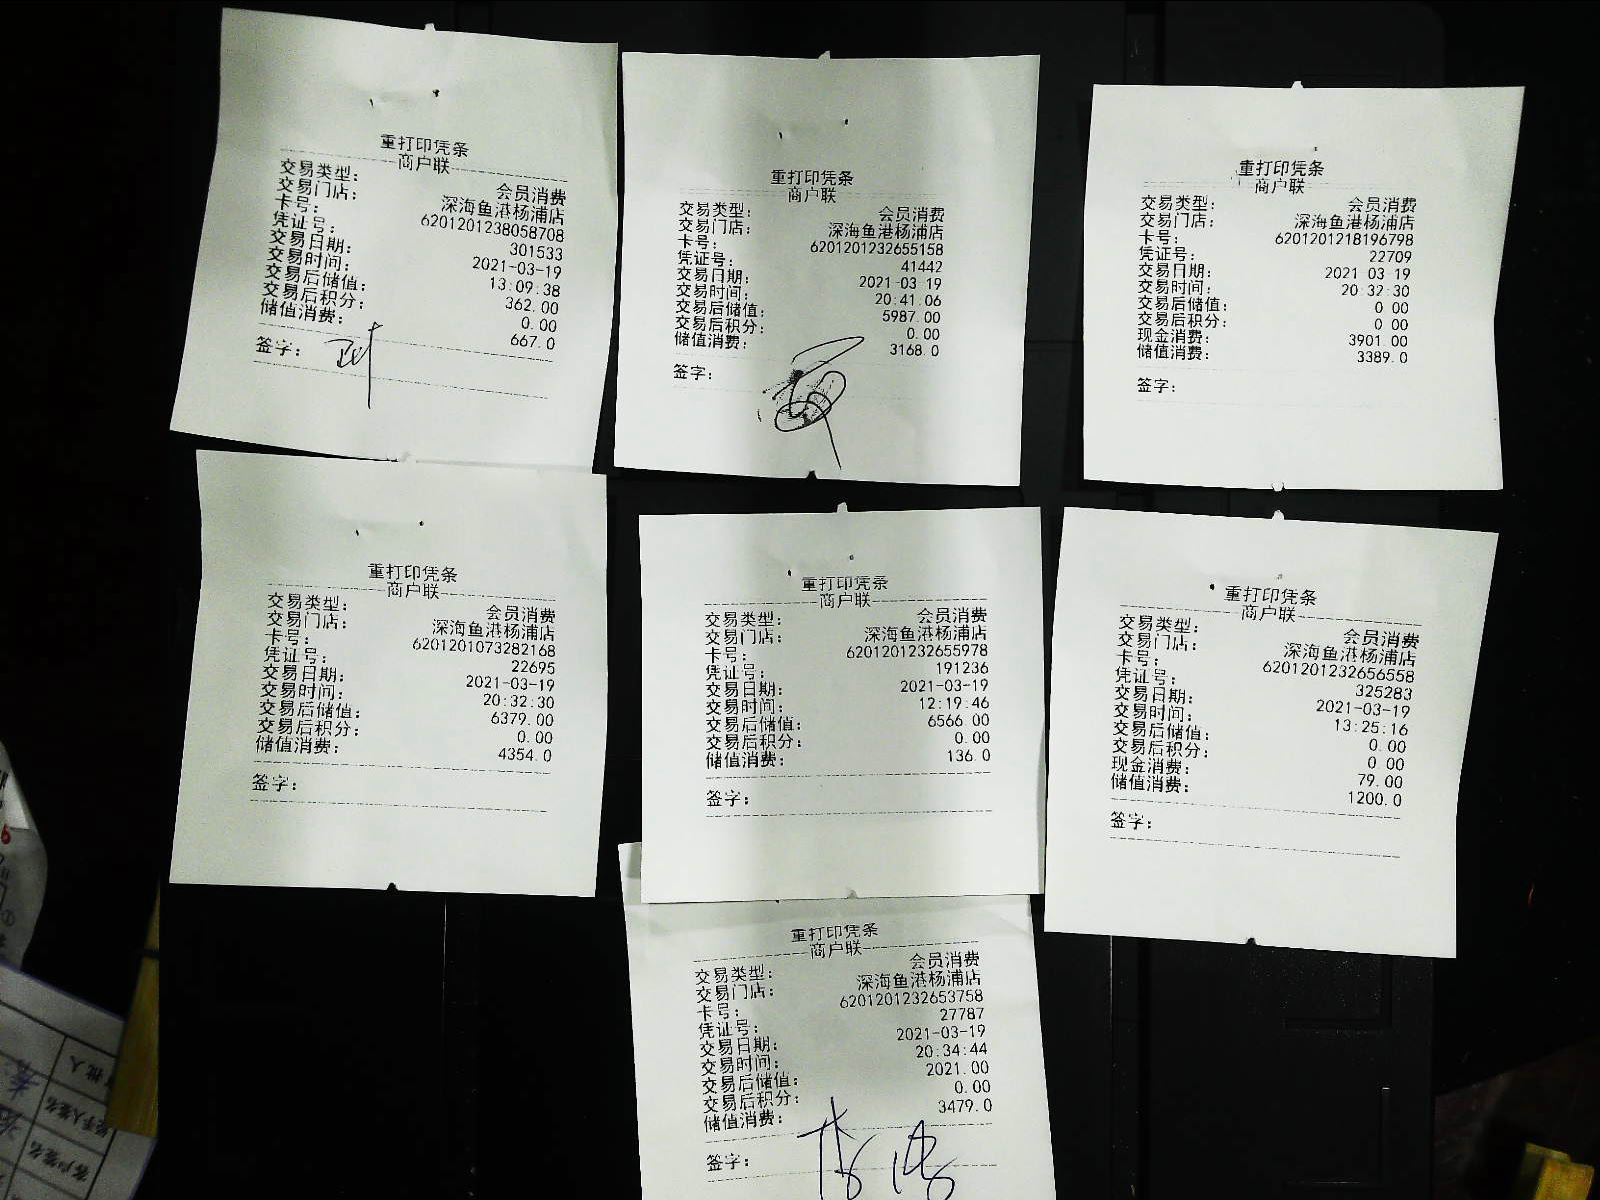 重打印凭条
商户联
交易类型: 会员消费
交易门店: 深海鱼港杨浦店
卡号: 6201201238058708
凭证号: 301533
交易日期: 2021-03-19
交易时间: 13:09:38
交易后储值: 362.00
交易后积分: 0.00
储值消费: 667.0
签字:
重打印凭条
商户联
交易类型: 会员消费
交易门店: 深海鱼港杨浦店
卡号: 6201201232655158
凭证号: 41442
交易日期: 2021-03-19
交易时间: 20:41:06
交易后储值: 5987.00
交易后积分: 0.00
储值消费: 3168.0
签字:
重打印凭条
商户联
交易类型: 会员消费
交易门店: 深海鱼港杨浦店
卡号: 6201201218196798
凭证号: 22709
交易日期: 2021-03-19
交易时间: 20:32:30
交易后储值: 0.00
交易后积分: 0.00
现金消费: 3901.00
储值消费: 3389.0
签字:
重打印凭条
商户联
交易类型: 会员消费
交易门店: 深海鱼港杨浦店
卡号: 6201201073282168
凭证号: 22695
交易日期: 2021-03-19
交易时间: 20:32:30
交易后储值: 6379.00
交易后积分: 0.00
储值消费: 4354.0
签字:
重打印凭条
商户联
交易类型: 会员消费
交易门店: 深海鱼港杨浦店
卡号: 6201201232655978
凭证号: 191236
交易日期: 2021-03-19
交易时间: 12:19:46
交易后储值: 6566.00
交易后积分: 0.00
储值消费: 136.0
签字:
重打印凭条
商户联
交易类型: 会员消费
交易门店: 深海鱼港杨浦店
卡号: 6201201232656558
凭证号: 325283
交易日期: 2021-03-19
交易时间: 13:25:16
交易后储值: 0.00
交易后积分: 0.00
现金消费: 79.00
储值消费: 1200.0
签字:
重打印凭条
商户联
交易类型: 会员消费
交易门店: 深海鱼港杨浦店
卡号: 6201201232653758
凭证号: 27787
交易日期: 2021-03-19
交易时间: 20:34:44
交易后储值: 2021.00
交易后积分: 0.00
储值消费: 3479.0
签字:
客户签名